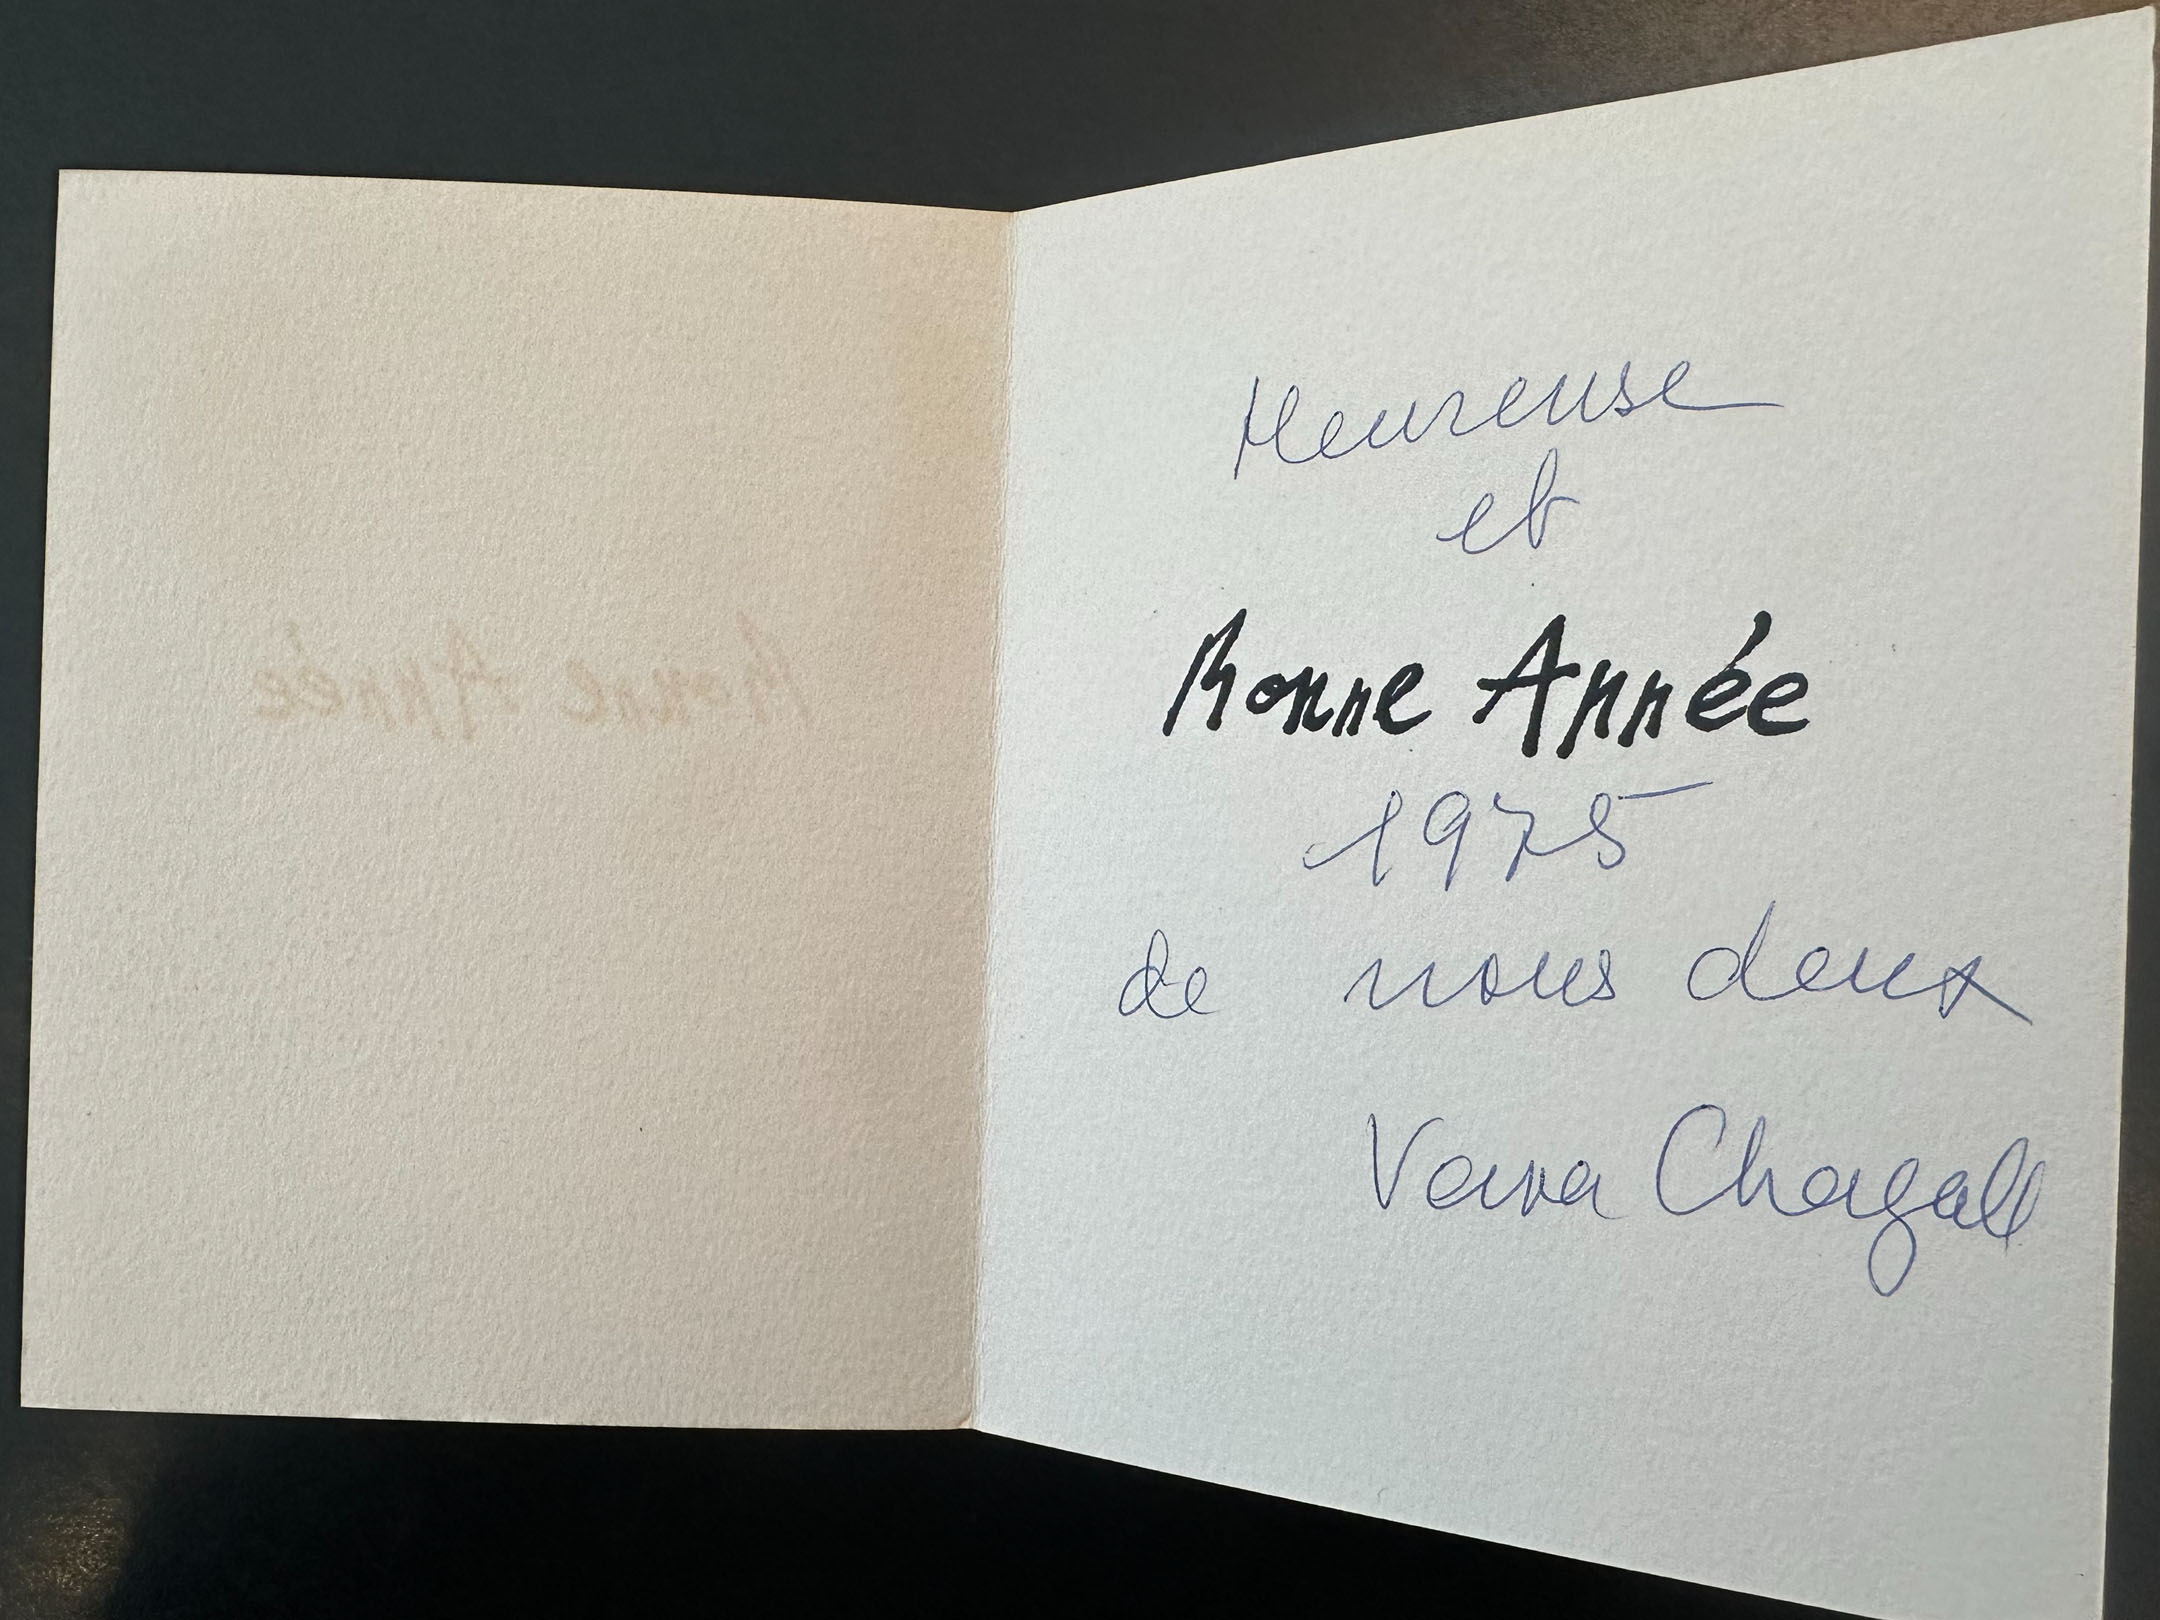 Heureuse
et
Bonne Année
1975
de nous deux
Vava Chagall